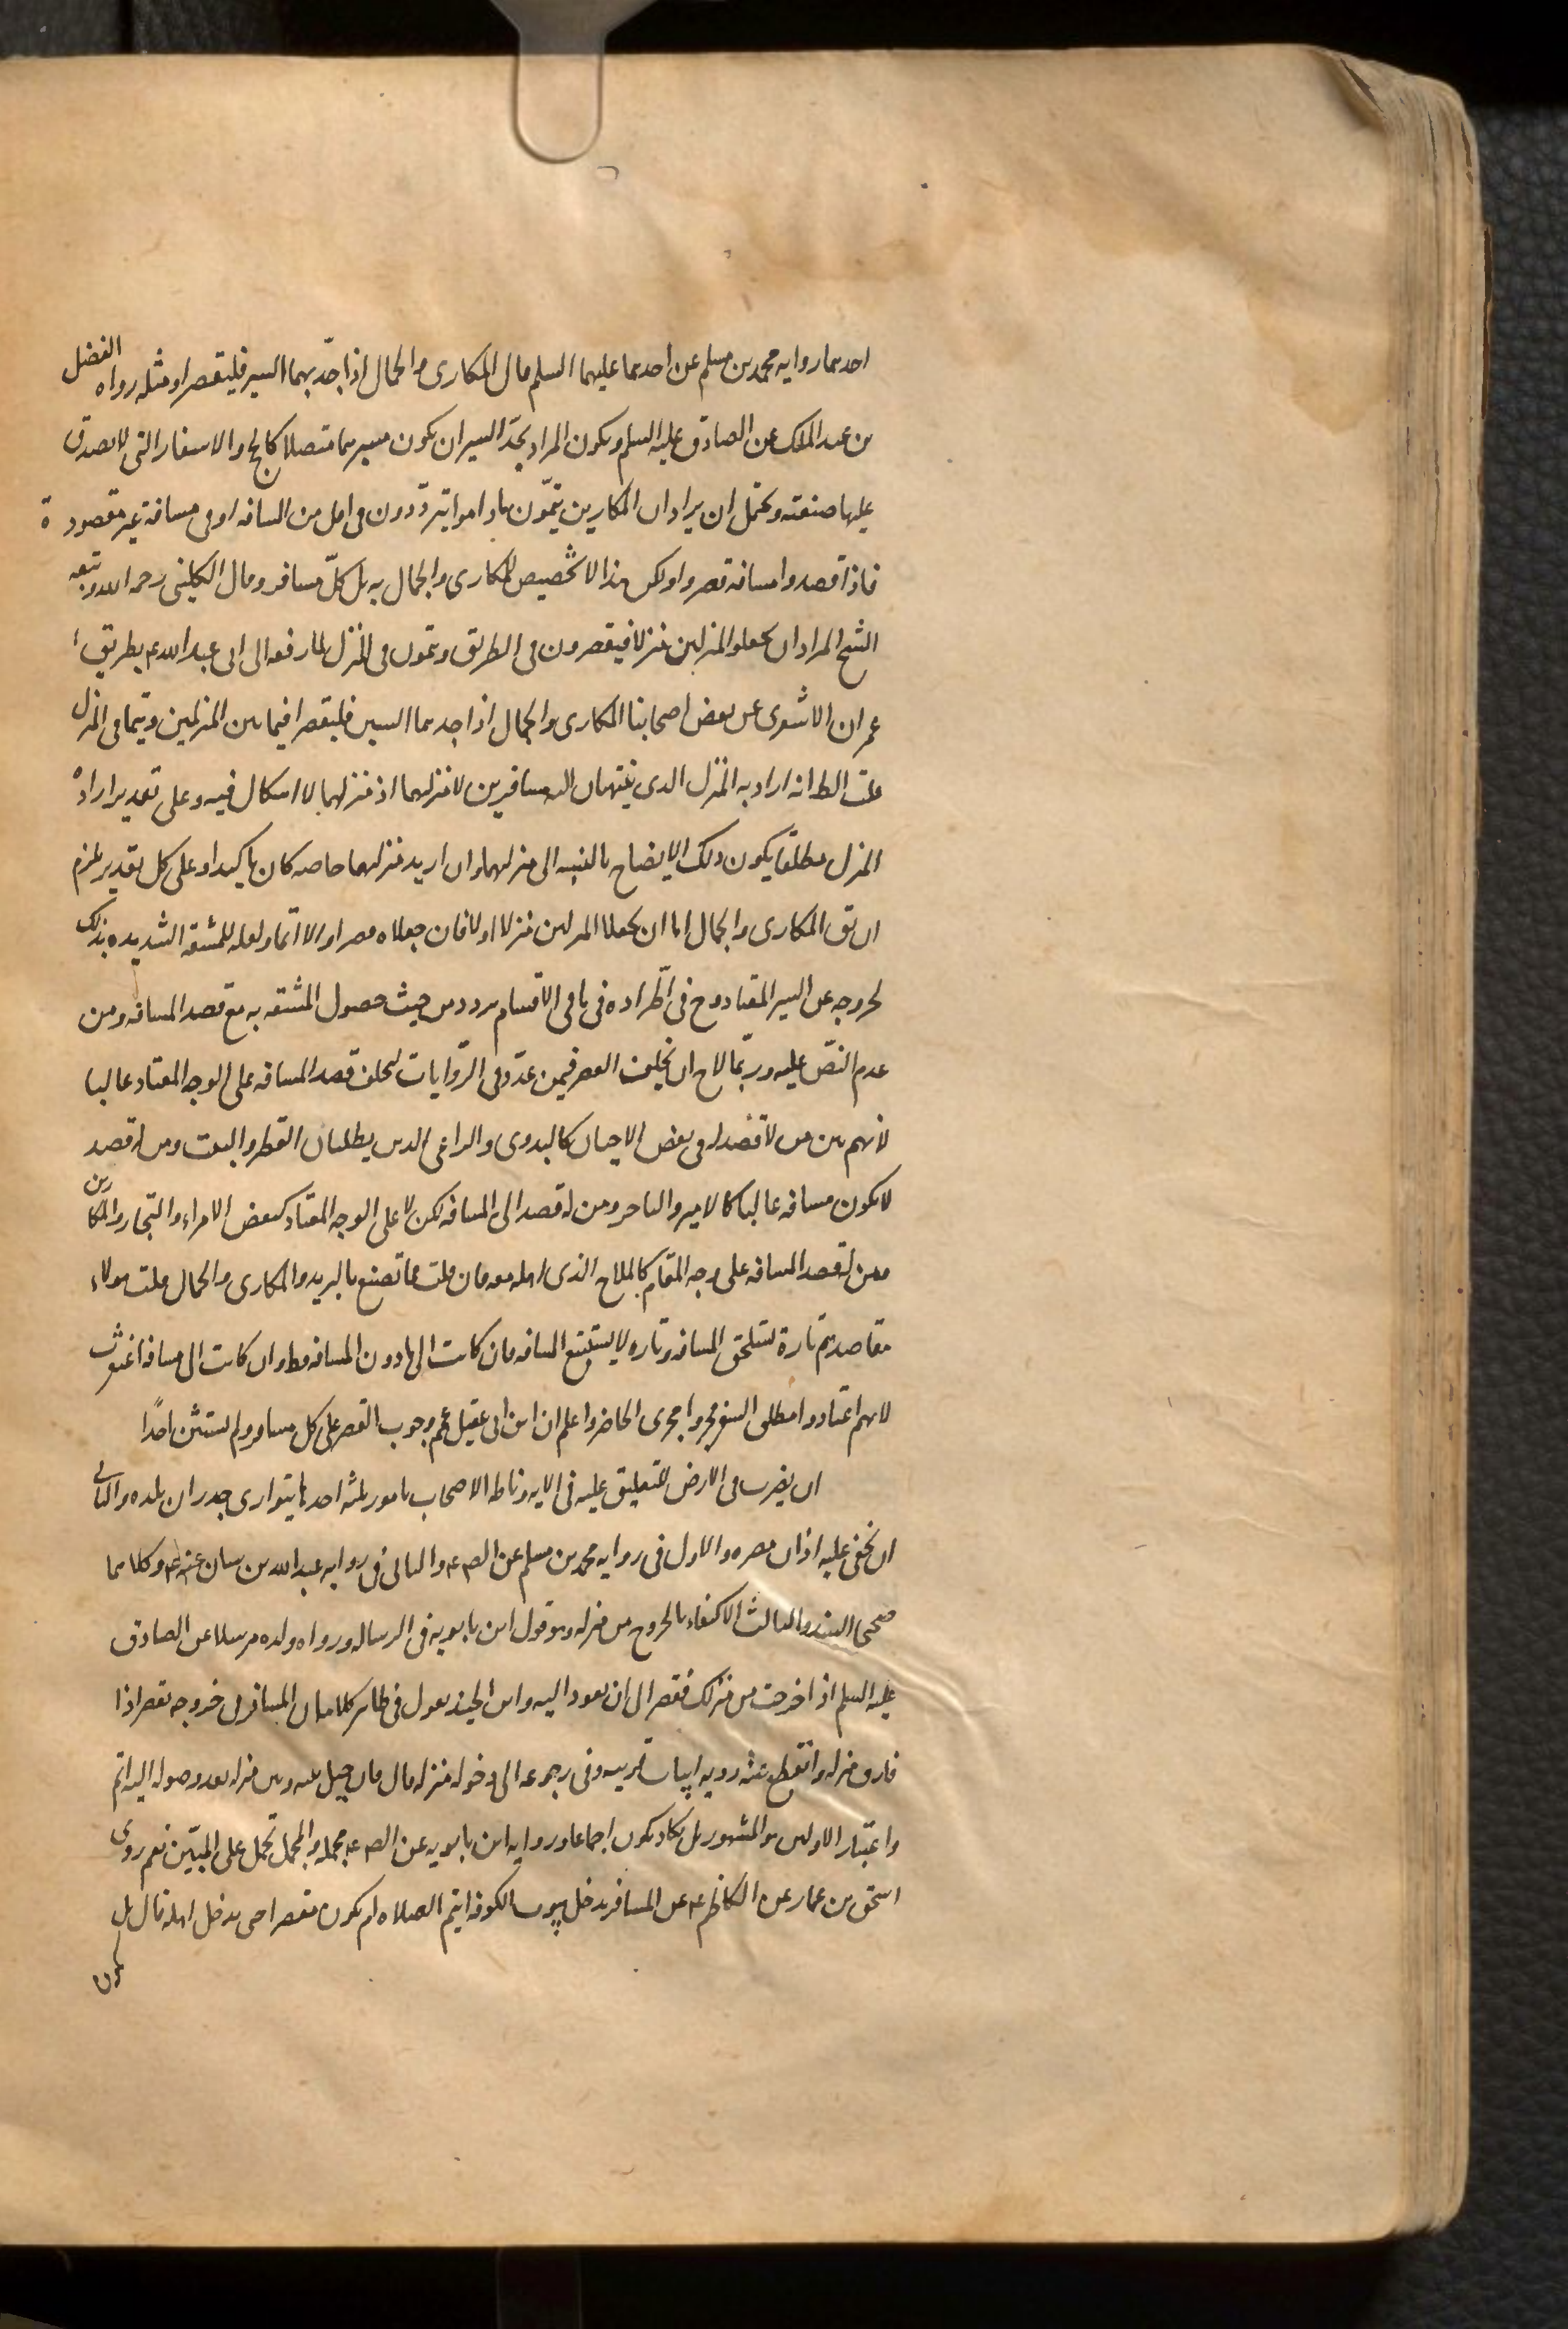 احدهما رواية محمد بن مسلم عن احدهما عليهما السلم قال المكارى والجمال اذا جدّ بهما السير فليقصرا ومثله رواه الفضل
بن عبد الملك عن الصادق عليه السلم ويكون المراد بجدّ السير ان يكون مسيرهما متصلا كالحج والاسفار التى لا يصدق
عليها صنعته ويحتمل ان يراد ان المكارين يتمّون ما داموا يتردّدون فى اقل من المسافه او فى مسافة غير مقصودة
فاذا قصدوا مسافه قصروا ولكن هذا لا تخصيص للمكارى والجمال به بل كلّ مسافر وقال الكلينى رحمه الله وتبعه
الشيخ المراد ان يجعلوا المنزلين منزلا فيقصرون فى الطريق ويتمون فى المنزل لما رفعه الى ابى عبد الله ع بطريق
عمران الاشعرى عن بعض اصحابنا المكارى والجمال اذا جد بهما السير فليقصرا فيما بين المنزلين ويتما فى المنزل
قلت الظ انه اراد به المنزل الذى ينتهيان اليه مسافرين لا منزلهما اذ منزلهما لا اشكال فيه وعلى تقدير ارادة
المنزل مطلقا يكون ذلك الايضاح بالنسبه الى منزلهما وان اريد منزلهما خاصه كان تاكيدا وعلى كل تقدير يلزم
ان يق المكارى والجمال اما ان يجعلا المنزلين منزلا اولا فان جعلاه قصرا والا اتما ولعله للمشقه الشديده بذلك
لخروجه عن السير المعتاد وح فى اطّراده فى باقى الاقسام تردد من حيث حصول المشقه به مع قصد المسافه ومن
عدم النصّ عليه وربّما لاح ان تخلف القصر فيمن عدّد فى الرّوايات لتخلف قصد المسافه على الوجه المعتاد غالبا
لانهم بين من لا قصد له فى بعض الاحيان كالبدوى والراعى الذين يطلبان القطر والنبت ومن له قصد
لا يكون مسافه غالبا كالامير والتاجر ومن له قصد الى المسافه لكن لا على الوجه المعتاد كبعض الامراء والتجار والمكارين
ومن له قصد المسافه على وجه المقام كالملاح الذى اهله معه فان قلت فما تصنع بالبريد والمكارى والجمال قلت هولاء
مقاصدهم تارة تستلحق المسافه وتاره لا يستتبع المسافه فان كانت الى ما دون المسافه فظ وان كانت الى مسافة اغتفرت
لانهم اعتادوا مطلق السفر فجروا مجرى الحاضر واعلم ان ابن ابى عقيل عمم وجوب القصر على كل مسافر ولم يستثن احدًا
ان يضرب فى الارض للتعليق عليه فى الايه وناطه الاصحاب بامور ثلثه احدها يتوارى جدران بلده والثانى
ان يخفى عليه اذان مصره والاول فى روايه محمد بن مسلم عن الص ع والثانى فى روايه عبد الله بن سنان عنه ع وكلاهما
صحيحا السند والثالث الاكتفاء بالخروج من منزله وهو قول ابن بابويه فى الرساله ورواه ولده مرسلا عن الصادق
عليه السلم اذا خرجت من منزلك فقصر الى ان تعود اليه وابن الجنيد يقول فى ظاهر كلامه ان المسافر فى خروجه يقصر اذا
فارق منزله وانقطع عنه رويه ابيات قريته وفى رجوعه الى دخوله منزله قال فان حيل بينه وبين منزله بعد وصوله اليه اتم
واعتبار الاولين هو المشهور بل يكاد يكون اجماعا وروايه ابن بابويه عن الص ع مجمله والمجمل يحمل على المبيّن نعم روى
اسحق بن عمار عن الكاظم ع عن المسافر يدخل بيوت الكوفه ايتم الصلاه ام يكون مقصرا حتى يدخل اهله قال بل
يكون